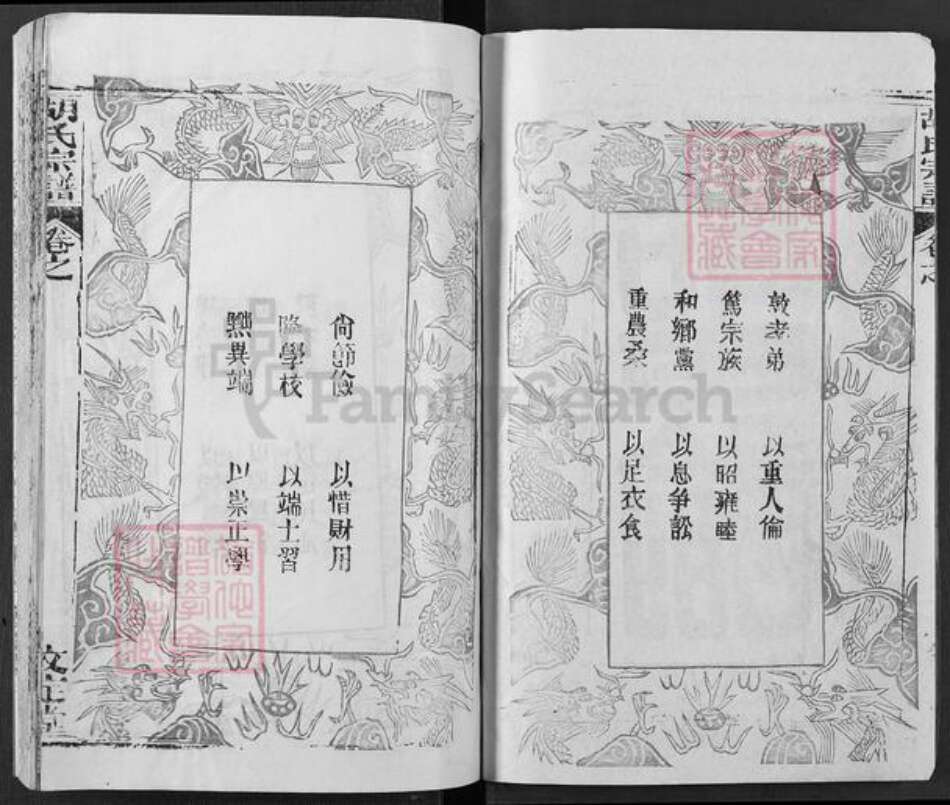 敦孝弟 以重人倫
篤宗族 以昭雍睦
和鄉黨 以息爭訟
重農桑 以足衣食
尙節儉 以惜財用
隆學校 以端士習
黜異端 以崇正學
胡氏宗譜
卷之
胡氏宗譜
卷之
FamilySearch